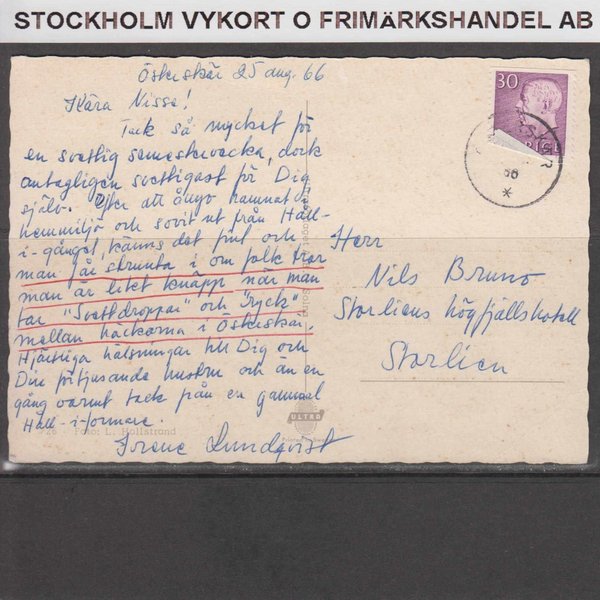 STOCKHOLM VYKORT O FRIMÄRKSHANDEL AB
Österskär 25 aug. 66
Kära Nisse!
Tack så mycket för
en svettig semestervecka, dock
antagligen svettigast för Dig
själv. Efter att ångo hamnat i
hemmiljö och sovit ut från Håll-
i-gånget, känns det fint och
man får strunta i om folk tror
man är litet knäpp när man
tar "Svettdroppar" och "ryck"
mellan häckarna i Österskär.
Hjärtliga hälsningar till Dig och
Din förtjusande hustru och än en
gång varmt tack från en gammal
Håll-i-formare.
Irene Lundqvist
Foto: L. Hollstrand
ULTRA
30
66
Herr
Nils Bruno
Storliens högfjällshotell
Storlien